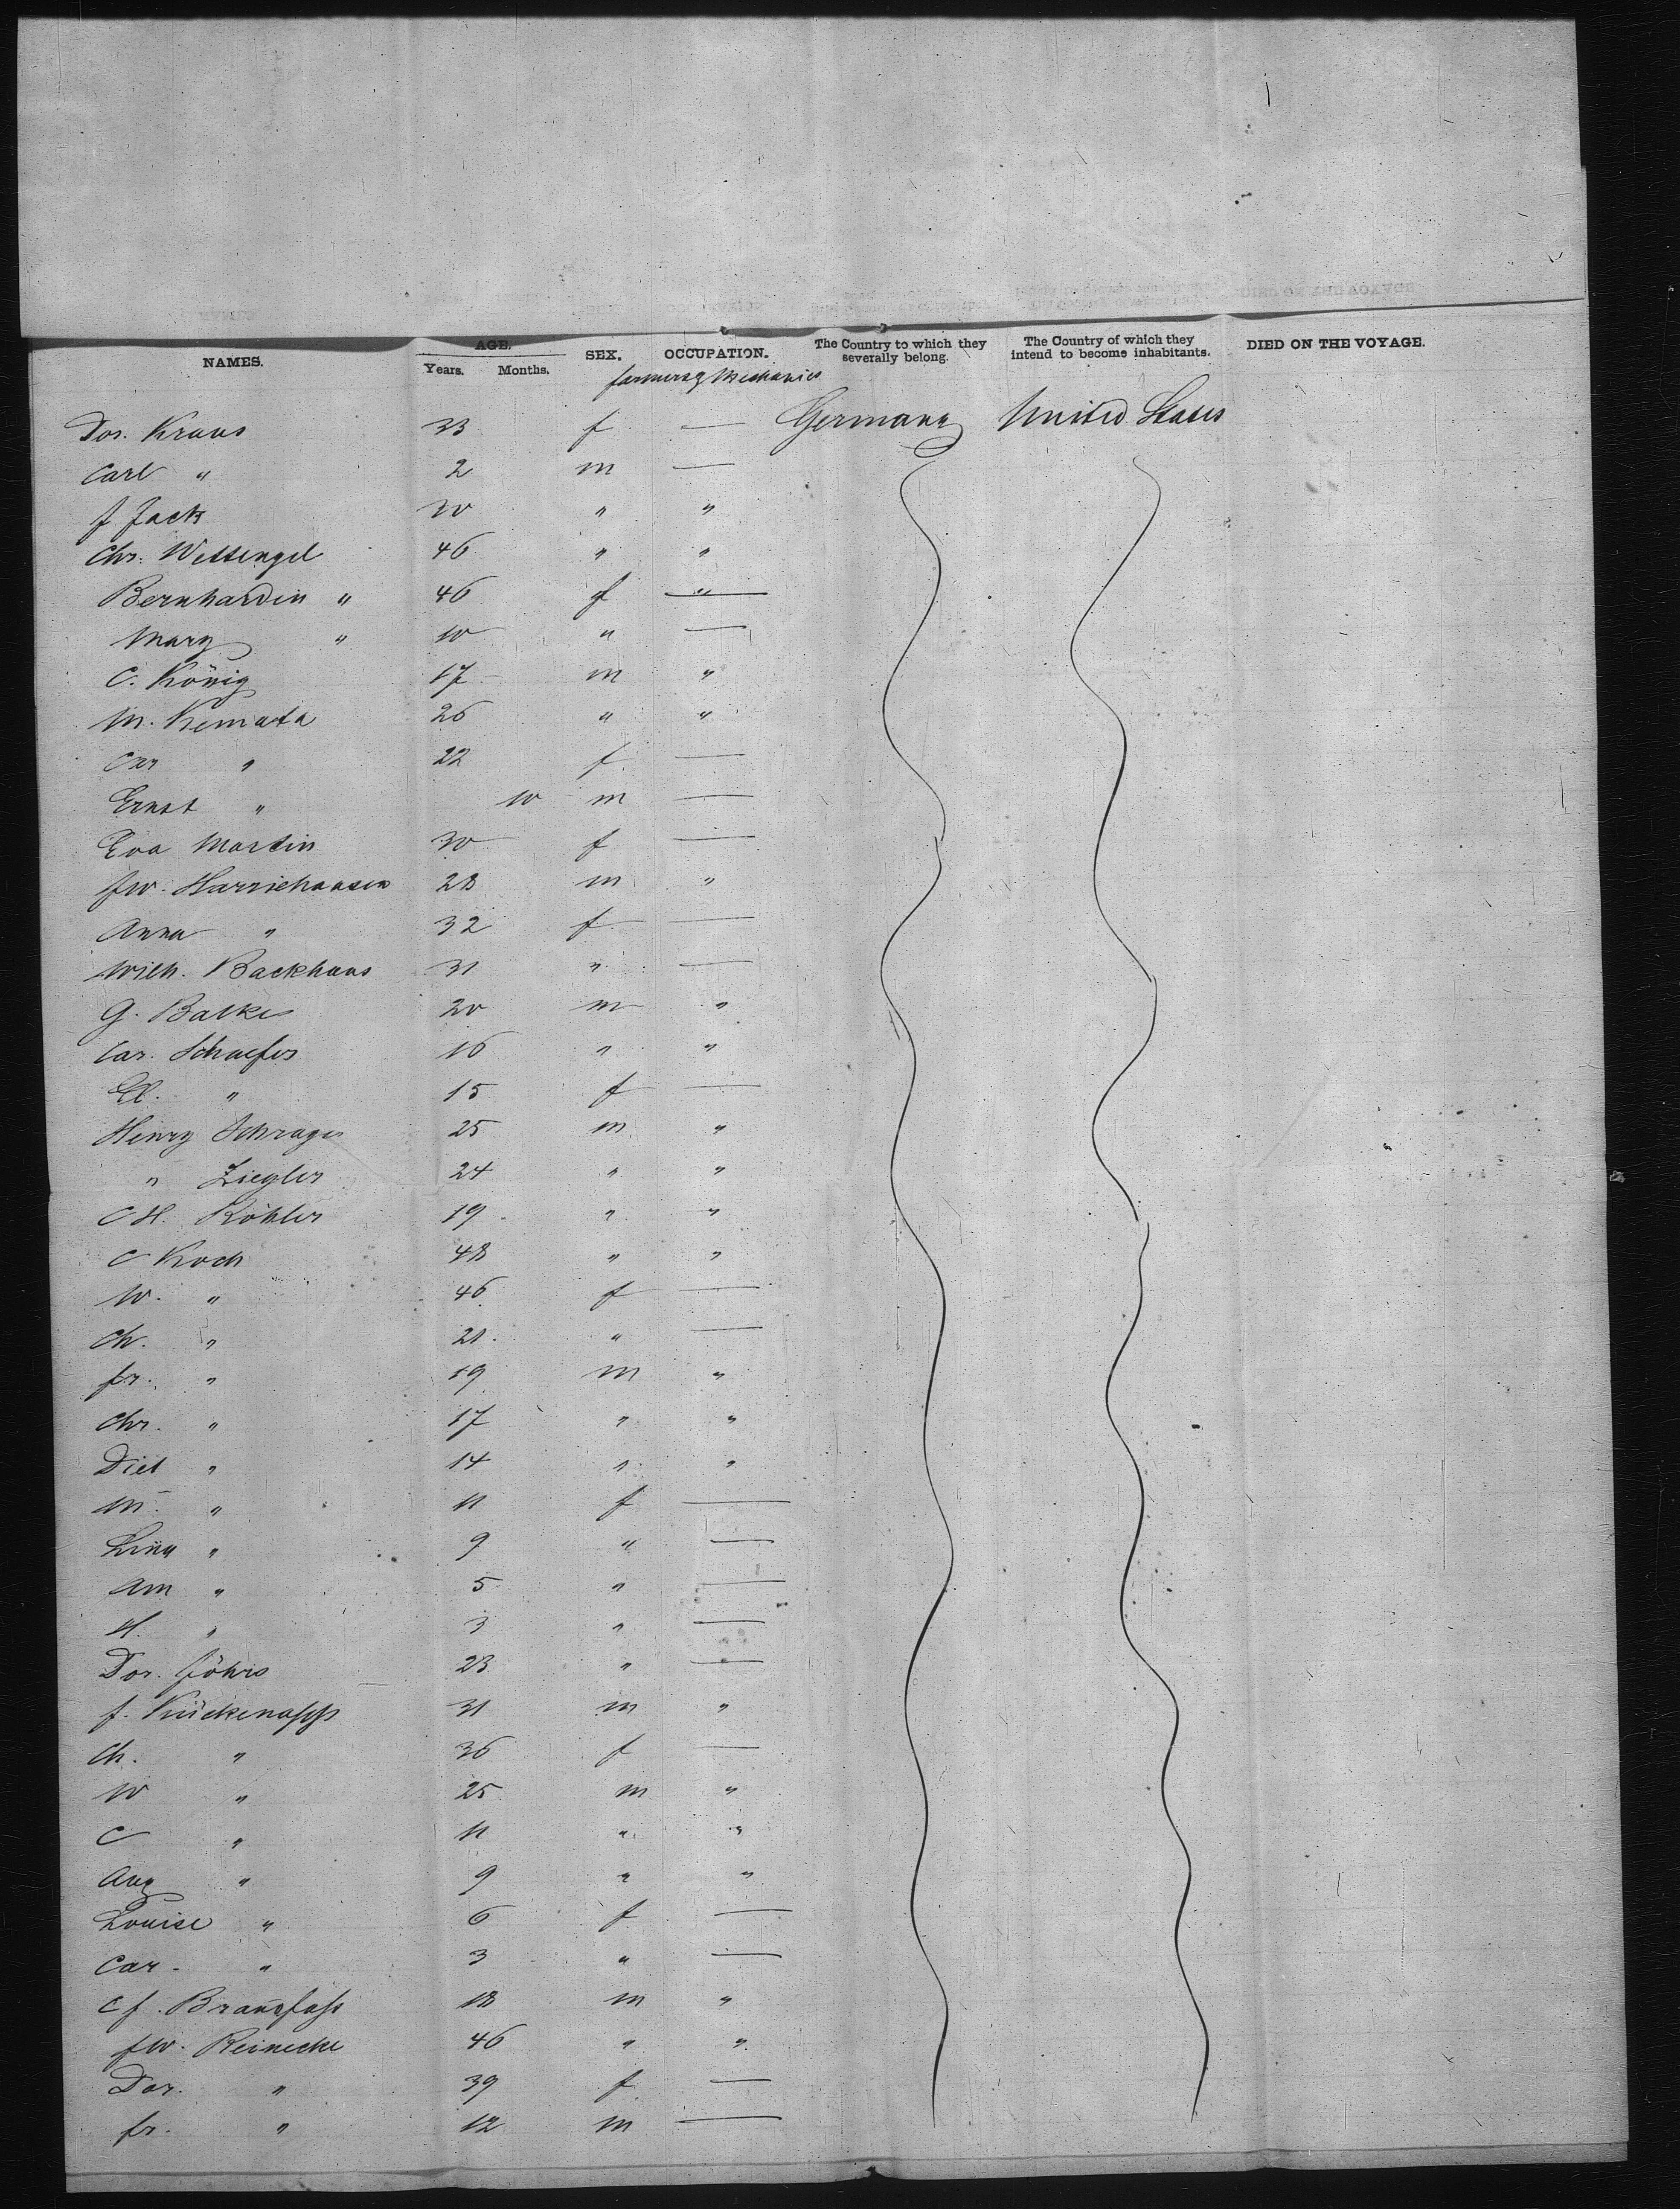 NAMES. AGE. Years. Months. SEX. OCCUPATION. The Country to which they severally belong. The Country of which they intend to become inhabitants. DIED ON THE VOYAGE.
farmers & Mechanics
Dor. Kraus 33 f — Germany United States
Carl " 2 m —
f Jack 20 " "
Chr. Wettengel 46 " "
Bernhardin " 46 f "
Mary " 10 " —
C. König 17 m "
M. Kemata 26 " "
Car " 22 f —
Ernst " 10 m —
Eva Martin 30 f —
fw. Harriehausen 28 m "
Anna " 32 f —
Wilh. Backhaus 31 " —
G. Batkes 20 m "
Car. Schaefer 16 " "
El. " 15 f —
Henry Schrager 25 m "
" Ziegler 24 " "
C H. Köhler 19 " "
C Koch 48 " "
W. " 46 f —
Ch. " 21 " —
fr. " 19 m "
Chr. " 17 " "
Diet " 14 " "
M. " 11 f —
Lina " 9 " —
Am " 5 " —
H. " 3 " —
Dor. Jöhrs 23 " —
f. 31 m "
Ch. " 36 f —
W " 25 m "
C " 11 " "
Aug " 9 " "
Louise " 6 f —
Car. " 3 " —
C f. 18 m "
fw. Reinecke 46 " "
Dor. " 39 f —
fr. " 12 m —